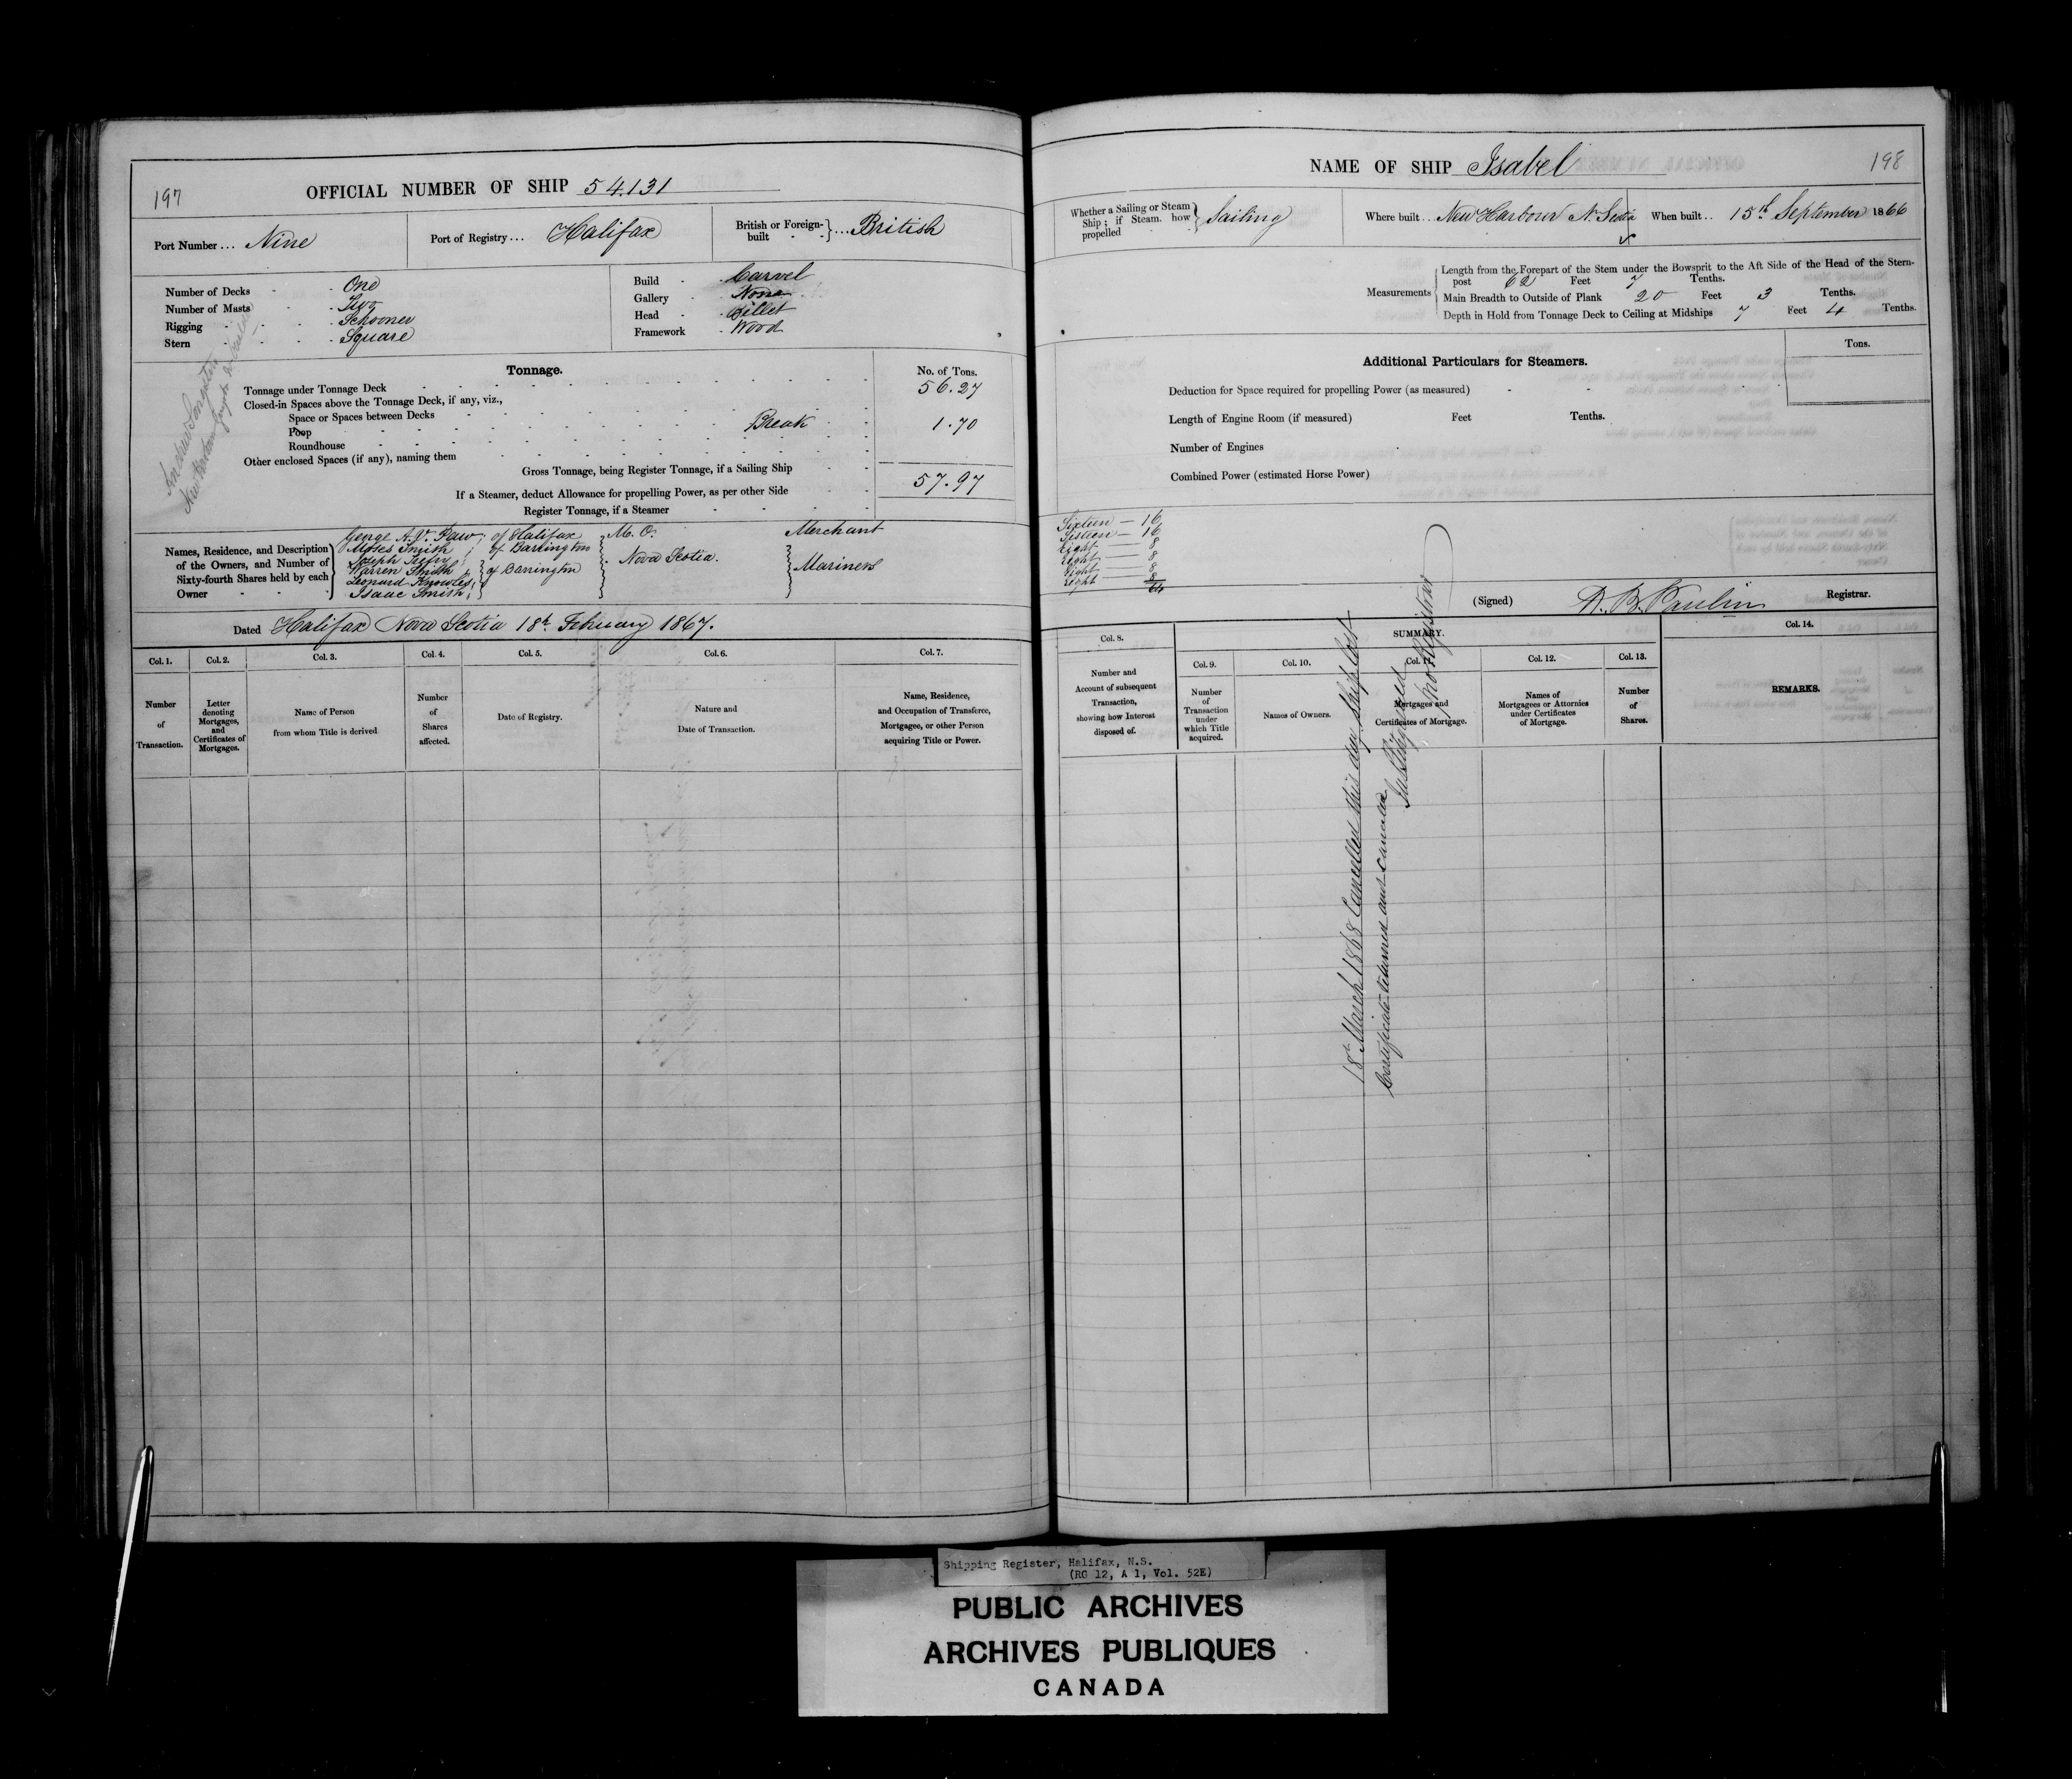 197
OFFICIAL NUMBER OF SHIP 54.131
Port Number ... Nine
Port of Registry ... Halifax
British or Foreign-built } ... British
Number of Decks - One
Number of Masts - Two
Rigging - Schooner
Stern - Square
Build - Carvel
Gallery - None
Head - Billet
Framework - Wood
Tonnage.
No. of Tons.
Tonnage under Tonnage Deck 56.27
Closed-in Spaces above the Tonnage Deck, if any, viz.,
Space or Spaces between Decks
Poop Break 1.70
Roundhouse
Other enclosed Spaces (if any), naming them
Gross Tonnage, being Register Tonnage, if a Sailing Ship 57.97
If a Steamer, deduct Allowance for propelling Power, as per other Side
Register Tonnage, if a Steamer
Names, Residence, and Description of the Owners, and Number of Sixty-fourth Shares held by each Owner
George A. V. Paw; of Halifax M. O. Merchant
Moses Smith; of Barrington
Joseph
Warren Smith; of Barrington Nova Scotia. Mariners
Leonard Knowles;
Isaac Smith;
Dated Halifax Nova Scotia 18th February 1867.
Col. 1. Col. 2. Col. 3. Col. 4. Col. 5. Col. 6. Col. 7.
Number of Transaction.
Letter denoting Mortgages, and Certificates of Mortgages.
Name of Person from whom Title is derived
Number of Shares affected.
Date of Registry.
Nature and Date of Transaction.
Name, Residence, and Occupation of Transferee, Mortgagee, or other Person acquiring Title or Power.
NAME OF SHIP Isabel
198
Whether a Sailing or Steam Ship; if Steam, how propelled } Sailing
Where built ... New Harbour N. Scotia
When built .. 15th September 1866
Measurements
Length from the Forepart of the Stem under the Bowsprit to the Aft Side of the Head of the Stern-
post 62 Feet 7 Tenths.
Main Breadth to Outside of Plank 20 Feet 3 Tenths.
Depth in Hold from Tonnage Deck to Ceiling at Midships 7 Feet 4 Tenths.
Additional Particulars for Steamers.
Tons.
Deduction for Space required for propelling Power (as measured)
Length of Engine Room (if measured) Feet Tenths.
Number of Engines
Combined Power (estimated Horse Power)
Sixteen — 16
Sixteen — 16
Eight — 8
Eight — 8
Eight — 8
Eight — 8
64
(Signed) Registrar.
Col. 8.
SUMMARY.
Col. 14.
Col. 9. Col. 10. Col. 11. Col. 12. Col. 13.
Number and Account of subsequent Transaction, showing how Interest disposed of.
Number of Transaction under which Title acquired.
Names of Owners.
Mortgages and Certificates of Mortgage.
Names of Mortgagees or Attornies under Certificates of Mortgage.
Number of Shares.
REMARKS.
18th March 1868 Cancelled this day Ship Lost
Certificate returned and cancelled
Registrar
Shipping Register, Halifax, N.S.
(RG 12, A 1, Vol. 52E)
PUBLIC ARCHIVES
ARCHIVES PUBLIQUES
CANADA